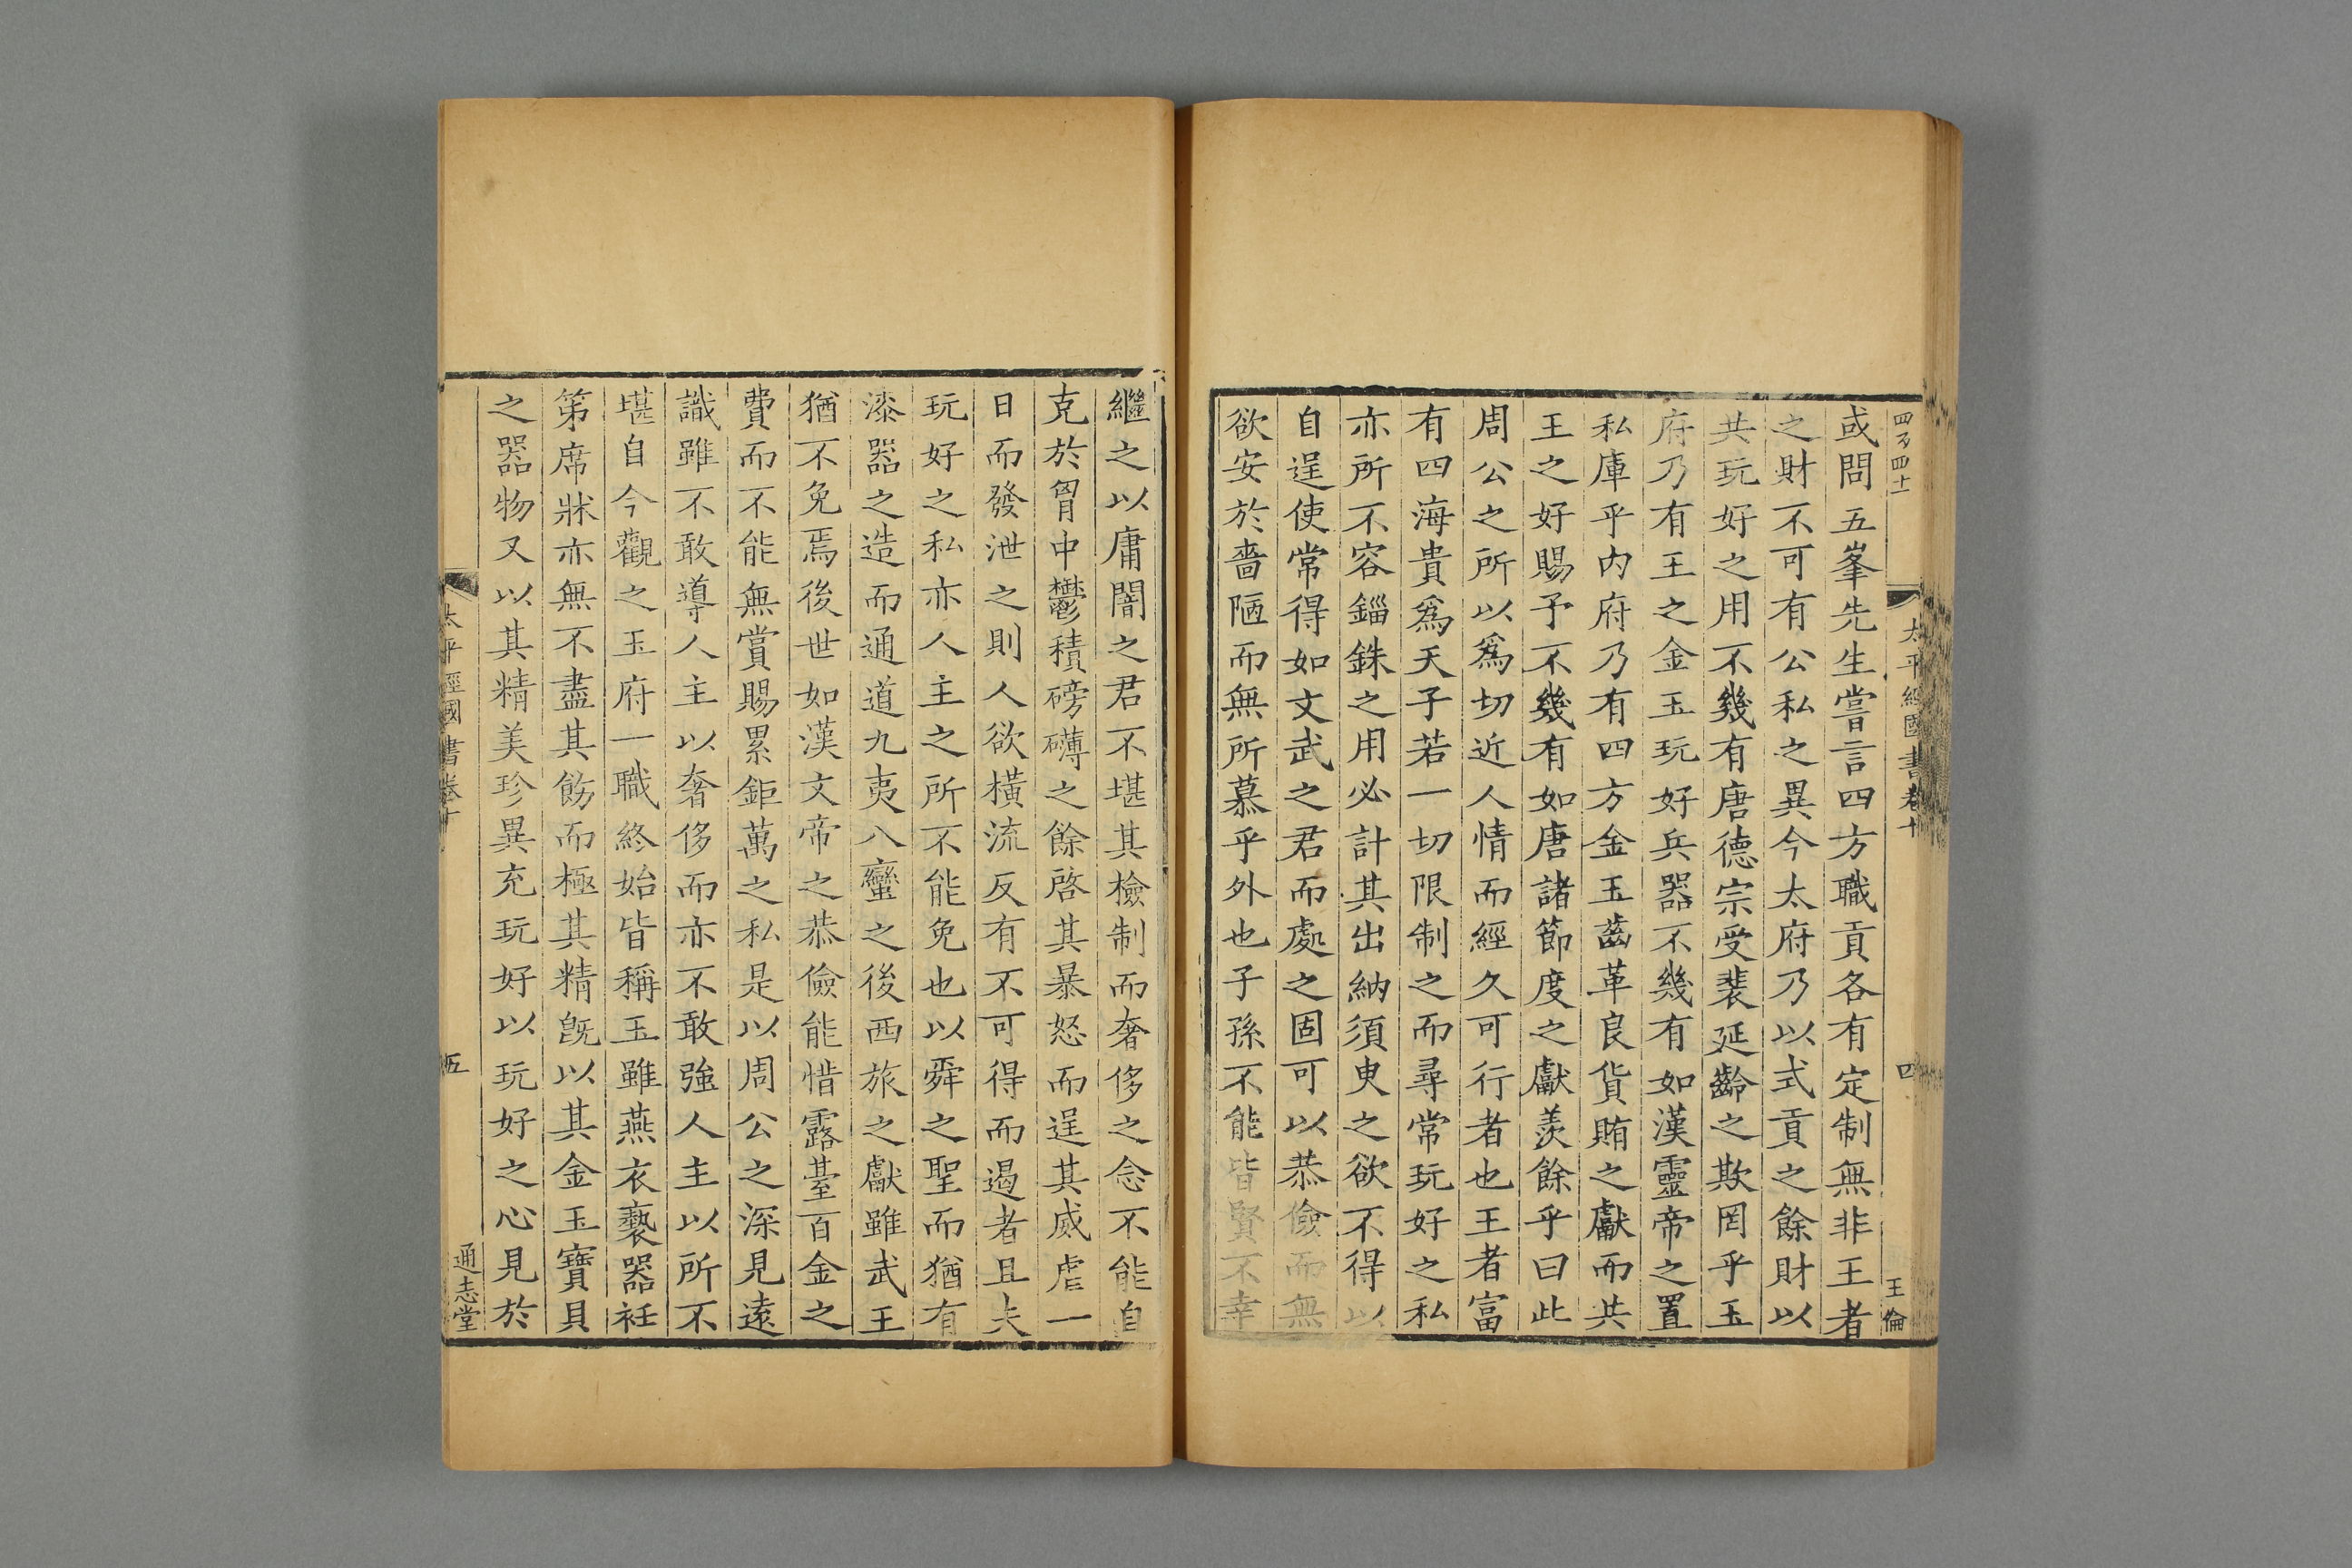 四百四十
太平經國書卷十
四
王倫
或問五峯先生嘗言四方職貢各有定制無非王者
之財不可有公私之異今太府乃以式貢之餘財以
共玩好之用不幾有唐德宗受裴延齡之欺罔乎玉
府乃有王之金玉玩好兵器不幾有如漢靈帝之置
私庫乎内府乃有四方金玉齒革良貨賄之獻而共
王之好賜予不幾有如唐諸節度之獻羨餘乎曰此
周公之所以爲切近人情而經久可行者也王者富
有四海貴爲天子若一切限制之而尋常玩好之私
亦所不容錙銖之用必計其出納須臾之欲不得以
自逞使常得如文武之君而處之固可以恭儉而無
欲安於嗇陋而無所慕乎外也子孫不能皆賢不幸
繼之以庸闇之君不堪其檢制而奢侈之念不能自
克於胷中鬱積磅礴之餘啓其暴怒而逞其威虐一
日而發泄之則人欲橫流反有不可得而遏者且夫
玩好之私亦人主之所不能免也以舜之聖而猶有
漆器之造而通道九夷八蠻之後西旅之獻雖武王
猶不免焉後世如漢文帝之恭儉能惜露臺百金之
費而不能無賞賜累鉅萬之私是以周公之深見遠
識雖不敢導人主以奢侈而亦不敢強人主以所不
堪自今觀之玉府一職終始皆稱玉雖燕衣褻器衽
第席牀亦無不盡其飭而極其精旣以其金玉寶貝
之器物又以其精美珍異充玩好以玩好之心見於
太平經國書卷十
五
通志堂